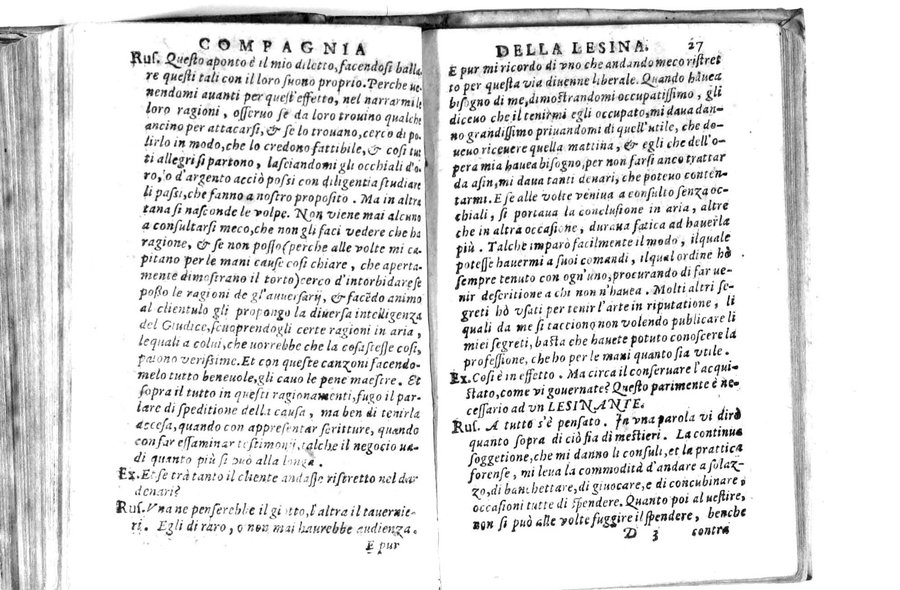 COMPAGNIA
Rus. Questo aponto è il mio diletto, facendosi balla
re questi tali con il loro suono proprio. Perche ue-
nendomi auanti per quest'effetto, nel narrarmi le
loro ragioni, osseruo se da loro trouino qualche
ancino per attacarsi, & se lo trouano, cerco di po-
lirlo in modo, che lo credono fattibile, & cosi tut
ti allegri si partono, lasciandomi gli occhiali d'o-
ro, ò d'argento acciò possi con diligentia studiare
li passi, che fanno a nostro proposito. Ma in altra
tana si nasconde le volpe. Non viene mai alcuno
a consultarsi meco, che non gli faci vedere che ha
ragione, & se non posso (perche alle volte mi ca-
pitano per le mani cause cosi chiare, che aperta-
mente dimostrano il torto) cerco d'intorbidare se
posso le ragioni de gl'auuersarij, & facēdo animo
al clientulo gli propongo la diuersa intelligenza
del Giudice, scuoprendogli certe ragioni in aria,
le quali a colui, che uorrebbe che la cosa stesse cosi,
paiono verissime. Et con queste canzoni facendo-
melo tutto beneuole, gli cauo le pene maestre. Et
sopra il tutto in questi ragionamenti, fugo il par-
lare di speditione della causa, ma ben di tenirla
accesa, quando con appresentar scritture, quando
con far essaminar testimonij, talche il negocio ua-
di quanto più si può alla longa.
Ex. Et se trà tanto il cliente andasse ristretto nel dar
denari?
Rus. Vna ne penserebbe il giotto, l'altra il tauernie-
ri. Egli di raro, o non mai haurebbe audienza.
E pur
DELLA LESINA. 27
E pur mi ricordo di vno che andando meco ristret
to per questa via diuenne liberale. Quando hauea
bisogno di me, dimostrandomi occupatissimo, gli
diceuo che il tenirmi egli occupato, mi daua dan-
no grandissimo priuandomi di quell'utile, che do-
ueuo riceuere quella mattina, & egli che dell'o-
pera mia hauea bisogno, per non farsi anco trattar
da asin, mi daua tanti denari, che poteuo conten-
tarmi. E se alle volte veniua a consulto senza oc-
chiali, si portaua la conclusione in aria, altre
che in altra occasione, duraua fatica ad hauerla
più. Talche imparò facilmente il modo, il quale
potesse hauermi a suoi comandi, il qual ordine hò
sempre tenuto con ogn'uno, procurando di far ue-
nir descritione a chi non n'hauea. Molti altri se-
greti hò vsati per tenir l'arte in riputatione, li
quali da me si tacciono non volendo publicare li
miei segreti, basta che hauete potuto conoscere la
professione, che ho per le mani quanto sia vtile.
Ex. Cosi è in effetto. Ma circa il conseruare l'acqui-
stato, come vi gouernate? Questo parimente è ne-
cessario ad vn LESINANTE.
Rus. A tutto s'è pensato. In vna parola vi dirò
quanto sopra di ciò fia di mestieri. La continua
soggetione, che mi danno li consuli, et la prattica
forense, mi leua la commodità d'andare a solaz-
zo, di banchettare, di giuocare, e di concubinare,
occasioni tutte di spendere. Quanto poi al uestire,
non si può alle volte fuggire il spendere, benche
D 3 contra